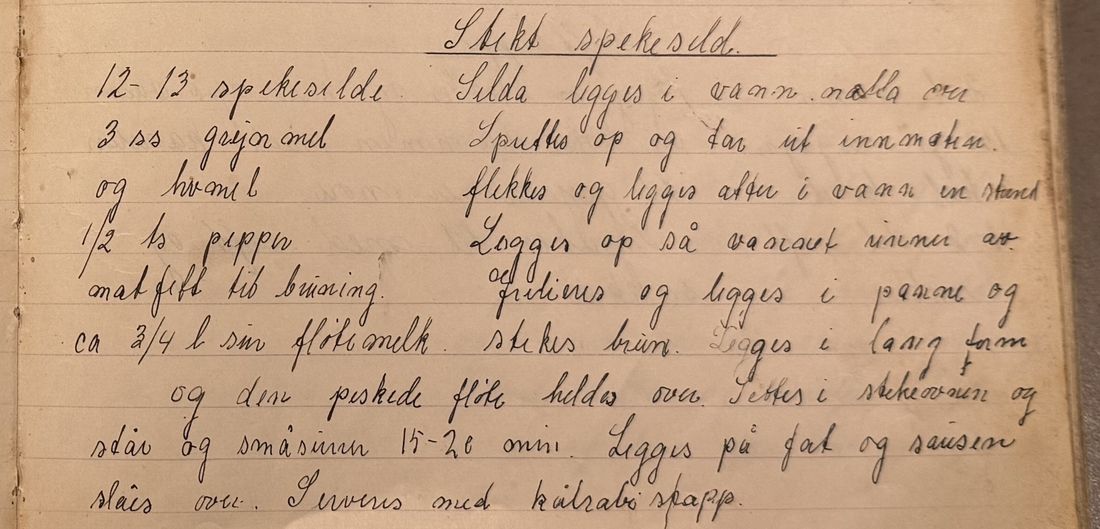 Stekt spekesild.
12-13 spekesilde. Silda legges i vann natta over
3 ss grejn mel Sprettes op og tar ut innmaten.
og hvmel flekkes og legges atter i vann en stund
1/2 ts pepper Legges op så vannet rinner av
mat fett til bruning. og legges i panne og
ca 3/4 l sur fløtemelk. stekes brun. Legges i lang form
og den piskede fløte heldes over. Settes i stekeovnen og
står og småsurrer 15-20 min. Legges på fat og sausen
slåes over. Serveres med kålrabi stapp.